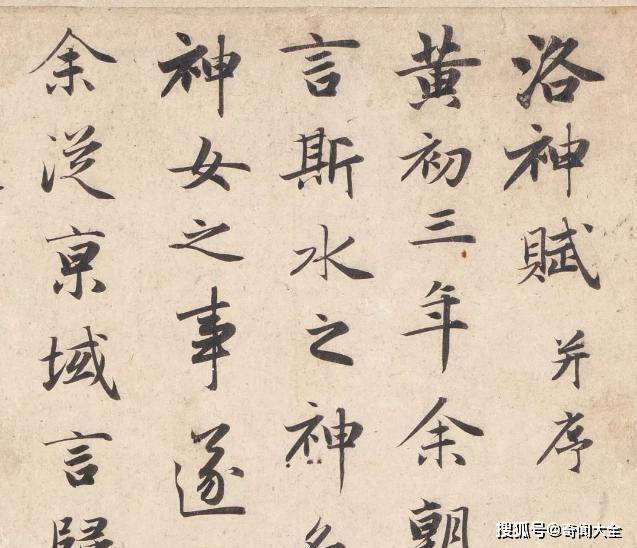 洛神賦并序
黄初三年余朝
言斯水之神名
神女之事遂
余從京域言歸
搜狐号@奇闻大全